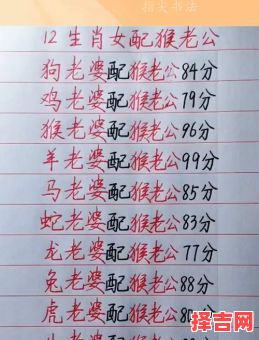 指尖书法
12生肖女配猴老公
狗老婆配猴老公84分
鸡老婆配猴老公79分
猴老婆配猴老公96分
羊老婆配猴老公99分
马老婆配猴老公85分
蛇老婆配猴老公83分
龙老婆配猴老公77分
兔老婆配猴老公88分
虎老婆配猴老公
择吉网